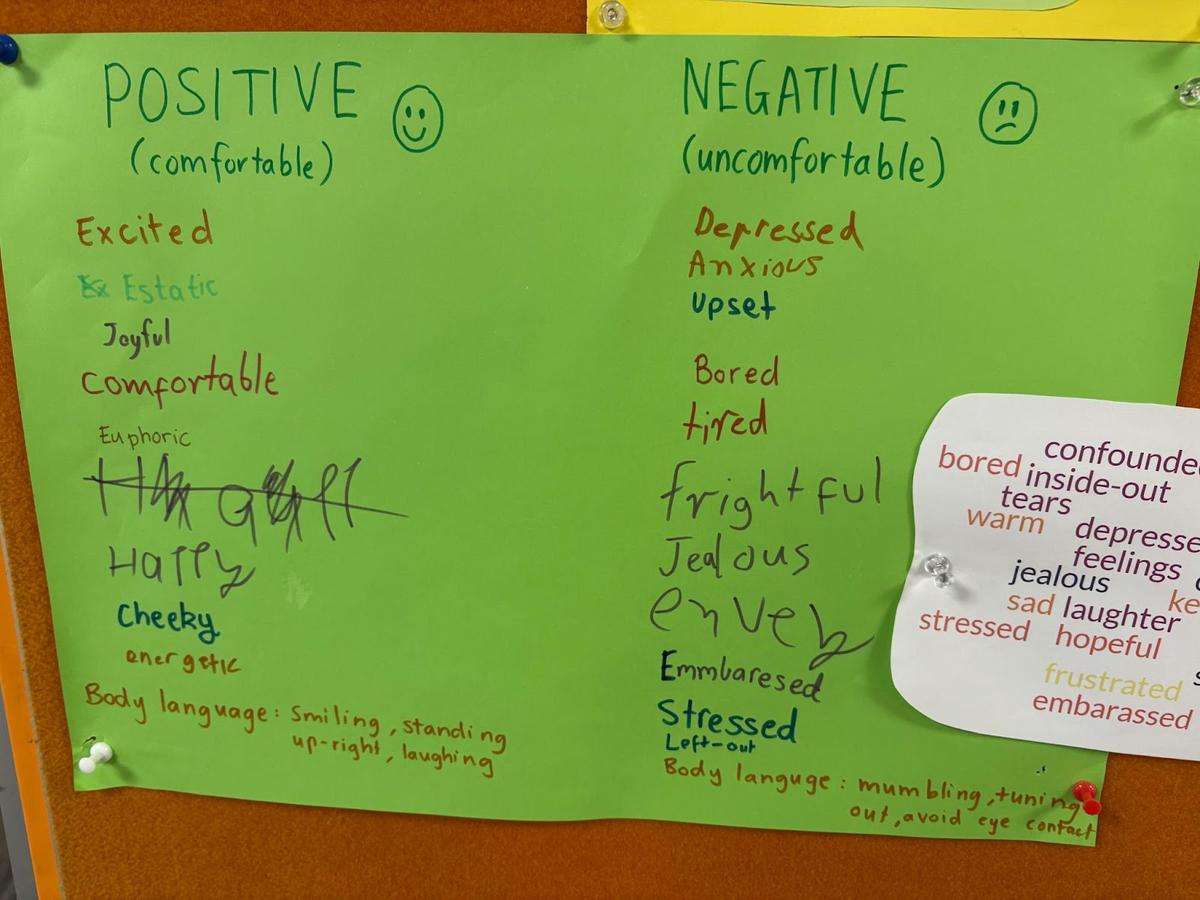 POSITIVE
(comfortable)
Excited
Estatic
Joyful
Comfortable
Euphoric
Happy
Cheeky
energetic
Body language: Smiling, standing
up-right, laughing
NEGATIVE
(uncomfortable)
Depressed
Anxious
Upset
Bored
tired
frightful
Jealous
Emmbaresed
Stressed
Left-out
Body languge: mumbling, tuning
out, avoid eye contact
confounde
bored inside-out
tears
warm depresse
feelings
jealous
ke
sad laughter
stressed hopeful
frustrated
embarassed